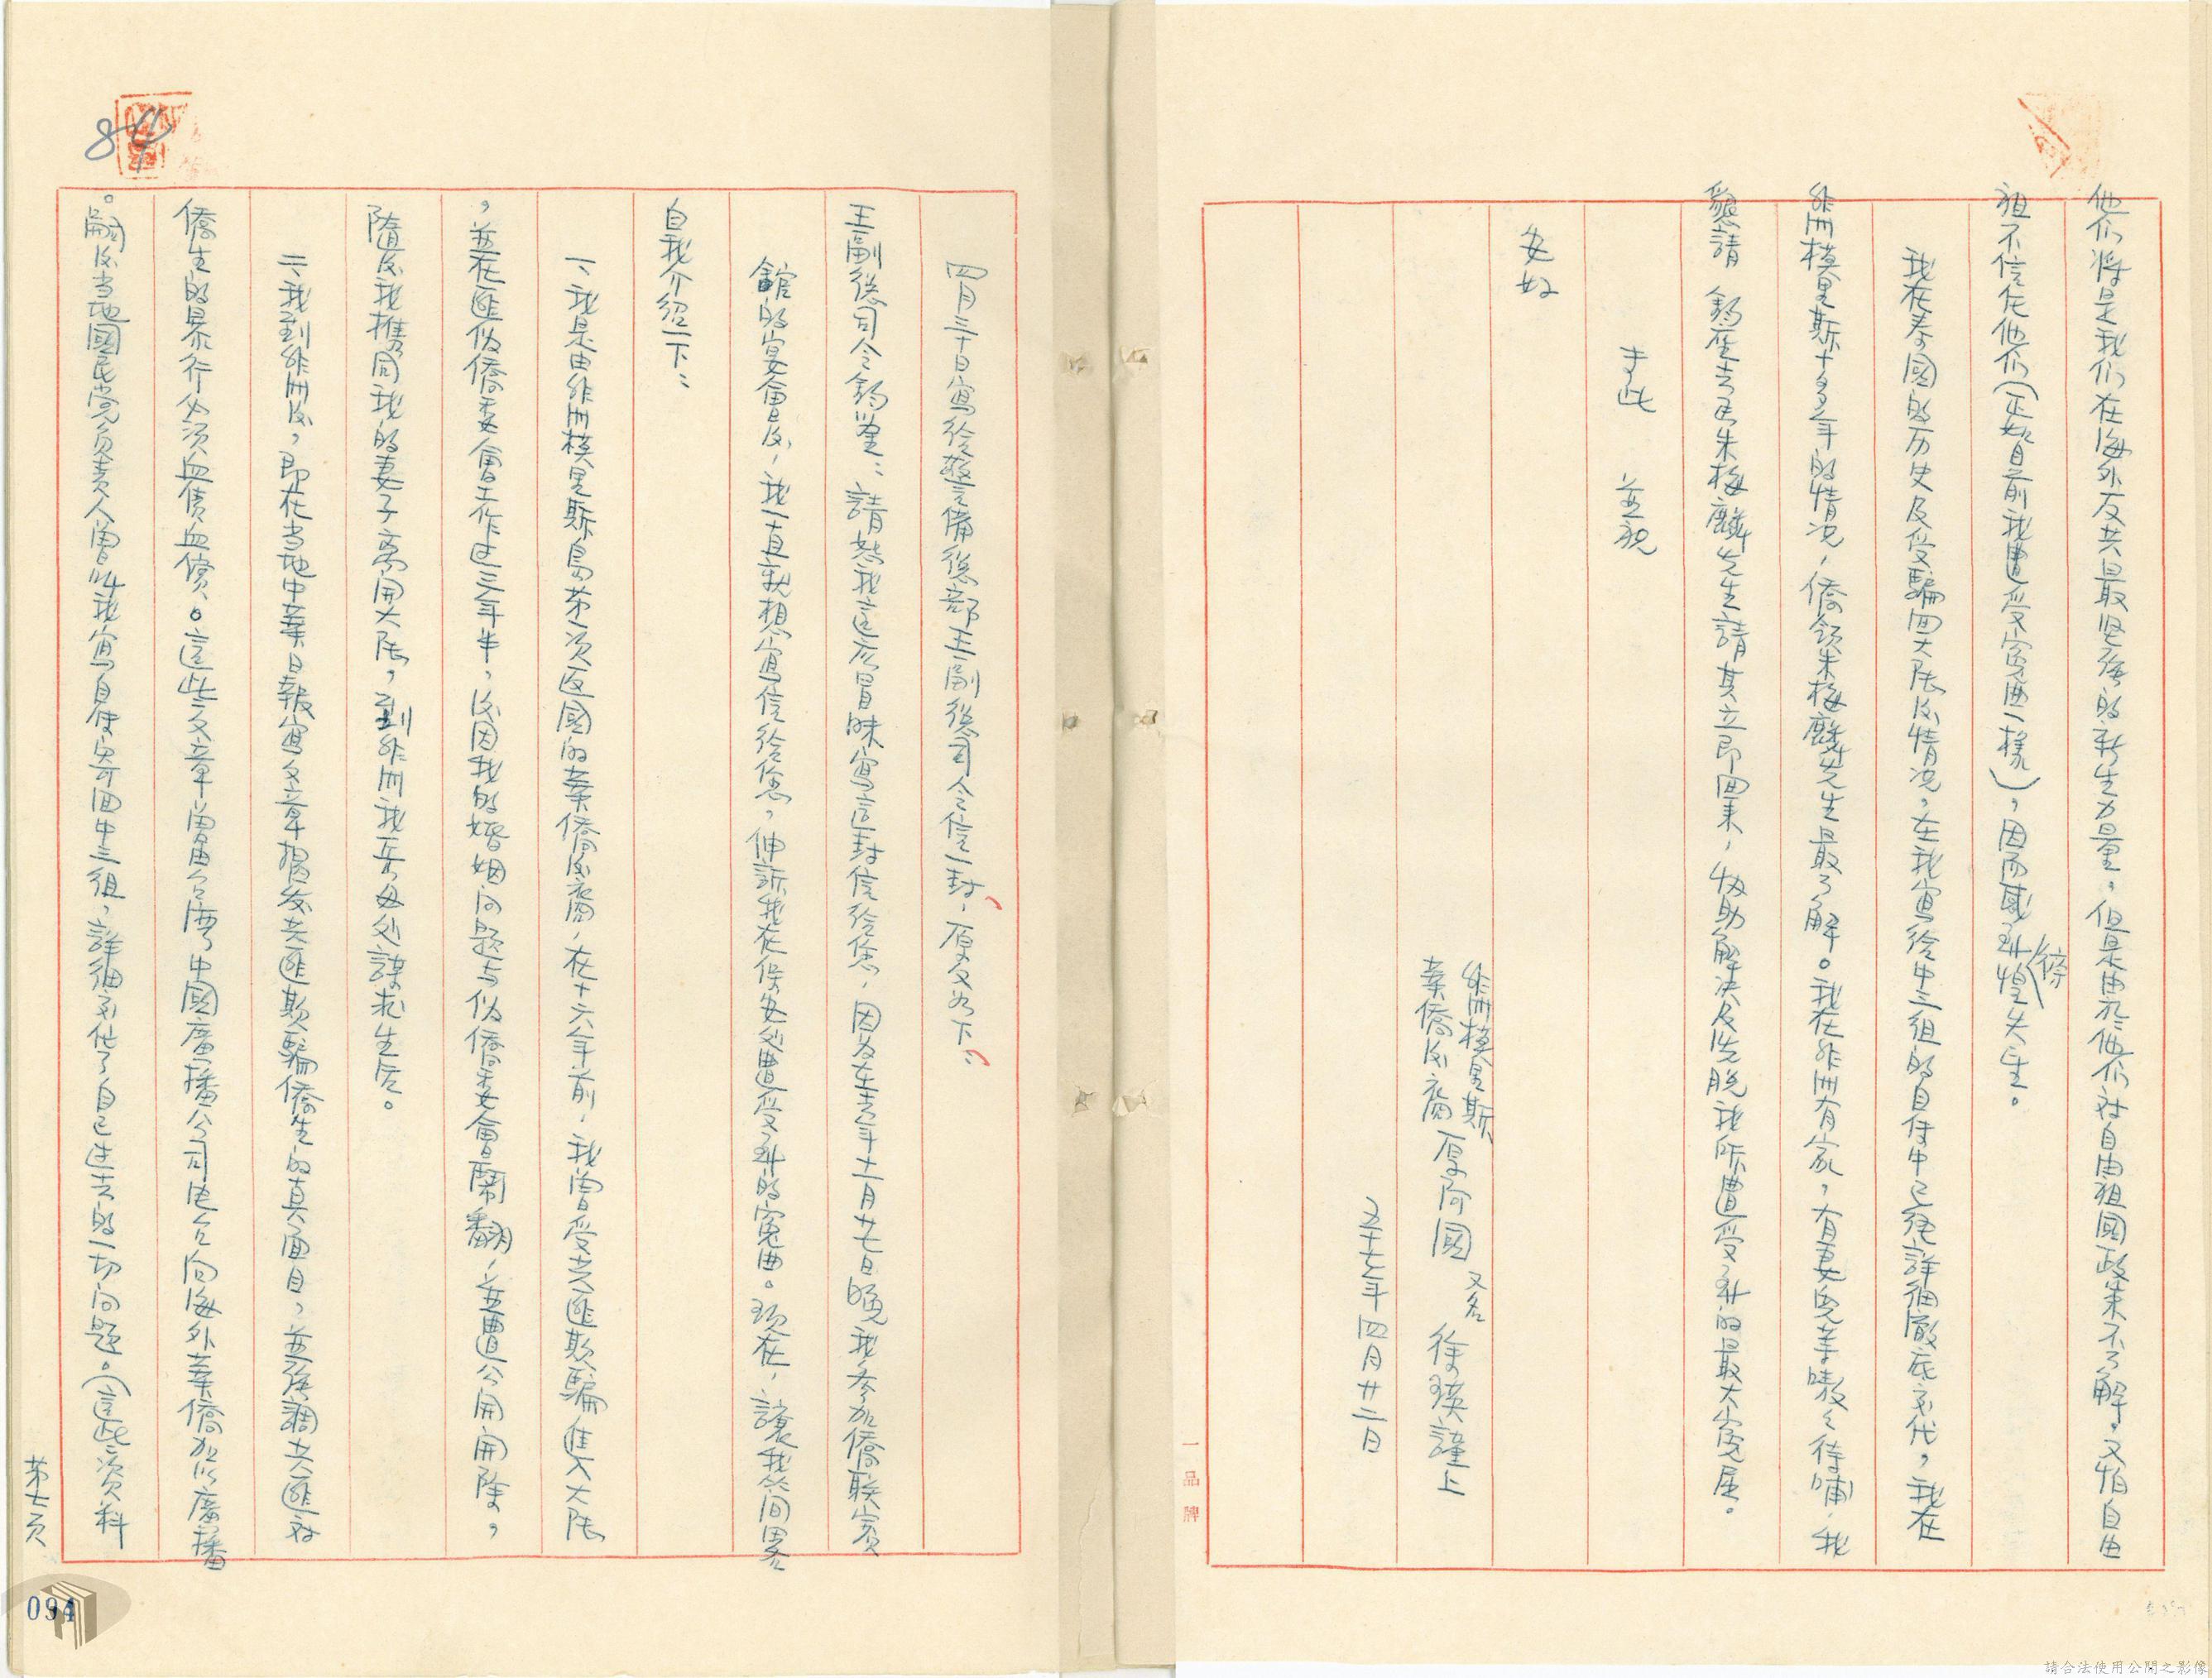 他们将是我们在海外反共最坚强的新生力量，但是由於他们对自由祖國政策不了解。又怕自由
祖不信任他们（正如目前我遭受寃曲一樣），因而感到徬惶失望。
我在泰國的历史及受騙囬大陆後情况，在我寫给中三组的自传中已經詳细徹底交代，我在
非洲模里斯十多年的情况，僑領朱梅麟先生最了解。我在非洲有家，有妻兒辜嗷々待哺，我
懇請 鈞座去函朱梅麟先生請其立即回来，协助解决及洗脱我所遭受到的最大寃屈。
专此 並祝
安好
非洲模里斯
華僑後裔 厚阿國 又名 徐瑛謹上
五十七年四月廿二日
一品牌
四月三十日寫给警備總部王副總司令信一封，原文如下：
王副總司令鈞鑒：請恕我這麽冒昧寫這封信给您，因为在去年十一月廿七日晚我参加僑联賓
館的宴會後，我一直就想寫信给您，伸訴我在保安处遭受到的寃曲。現在，讓我簡畧
自我介绍一下：
一、我是由非洲模里斯島第一次返國的華僑後裔，在十六年前，我曾受共匪欺騙進入大陆
，並在匪伪僑委會工作过三年半，後因我的婚姻问题与伪僑委會鬧翻，並遭公開開除。，
隨後我携同我的妻子离開大陆，到非洲我岳母处謀求生活。
二、我到非洲後，即在当地中華日報寫文章揭发共匪欺騙僑生的真面目，並强調共匪对
僑生的暴行必须血債血償。這些文章曾由台灣中國廣播公司电台向海外華僑加以廣播
。嗣後当地國民党负责人曾叫我寫自传寄回中三组，詳细交代了自己过去的一切问题。（這些資料
第七页
84
094
請合法使用公開之影像